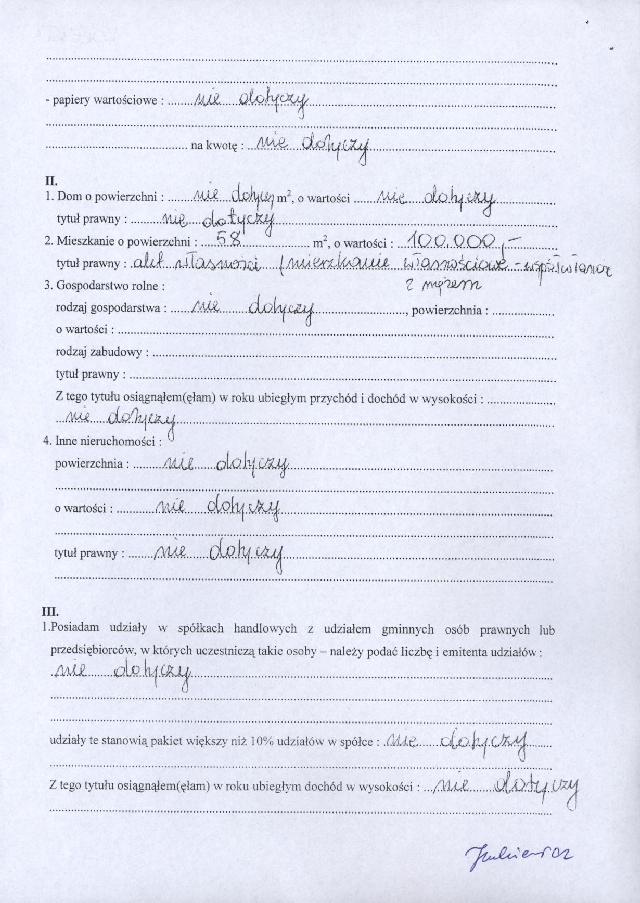 - papiery wartościowe : nie dotyczy
na kwotę : nie dotyczy
II.
1. Dom o powierzchni : nie dotyczy m², o wartości nie dotyczy
tytuł prawny : nie dotyczy
2. Mieszkanie o powierzchni : 58 m², o wartości : 100.000,-
tytuł prawny : akt własności (mieszkanie własnościowe -
z mężem
3. Gospodarstwo rolne :
rodzaj gospodarstwa : nie dotyczy, powierzchnia :
o wartości :
rodzaj zabudowy :
tytuł prawny :
Z tego tytułu osiągnąłem(ęłam) w roku ubiegłym przychód i dochód w wysokości :
nie dotyczy
4. Inne nieruchomości :
powierzchnia : nie dotyczy
o wartości : nie dotyczy
tytuł prawny : nie dotyczy
III.
1.Posiadam udziały w spółkach handlowych z udziałem gminnych osób prawnych lub
przedsiębiorców, w których uczestniczą takie osoby – należy podać liczbę i emitenta udziałów :
nie dotyczy
udziały te stanowią pakiet większy niż 10% udziałów w spółce : nie dotyczy
Z tego tytułu osiągnąłem(ęłam) w roku ubiegłym dochód w wysokości : nie dotyczy